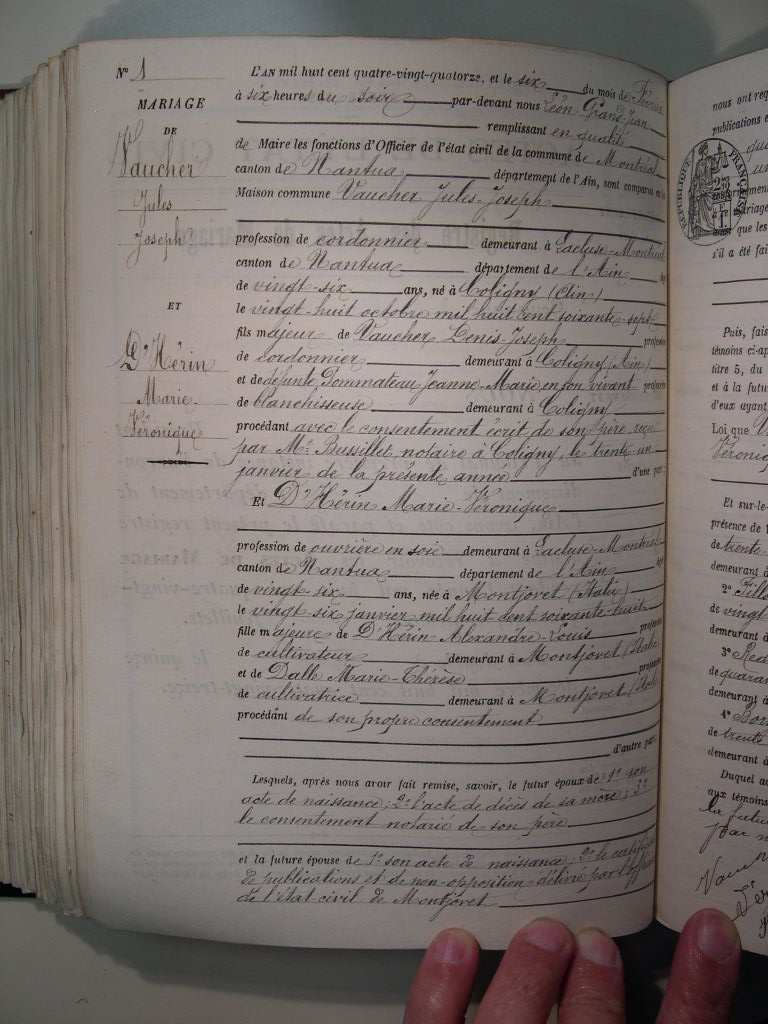 N° 1
MARIAGE
DE
Vaucher
Jules
Joseph
ET
D'Hérin
Marie
Véronique
L'AN mil huit cent quatre-vingt-quatorze, et le six du mois de
à six heures du soir par-devant nous Léon Grand-Jean
remplissant en qualité
de Maire les fonctions d'Officier de l'état civil de la commune de Montréal
canton de Nantua département de l'Ain, sont comparus en la
Maison commune Vaucher Jules-Joseph
profession de cordonnier demeurant à Lacluse-Montréal
canton de Nantua département de l'Ain
de vingt-six ans, né à Coligny (Ain)
le vingt huit octobre mil huit cent soixante-sept
fils majeur de Vaucher Denis-Joseph profession
de cordonnier demeurant à Coligny (Ain)
et de défunte Pommateau Jeanne-Marie en son vivant profession
de blanchisseuse demeurant à Coligny
procédant avec le consentement écrit de son père reçu
par Me Bussillet, notaire à Coligny, le trente-un
janvier de la présente année d'une part
Et D'Hérin Marie-Véronique
profession de ouvrière en soie demeurant à Lacluse-Montréal
canton de Nantua département de l'Ain
de vingt six ans, née à Montjovet (Italie)
le vingt-six janvier mil huit cent soixante-huit
fille majeure de D'Hérin Alexandre-Louis profession
de cultivateur demeurant à Montjovet (Italie)
et de Dalle Marie-Thérèse profession
de cultivatrice demeurant à Montjovet (Italie)
procédant de son propre consentement
d'autre part
Lesquels, après nous avoir fait remise, savoir, le futur époux de 1° son
acte de naissance; 2° l'acte de décès de sa mère; 3°
le consentement notarié de son père
et la future épouse de 1° son acte de naissance; 2° le certificat
de publications et de non-opposition délivré par l'officier
de l'état civil de Montjovet
nous ont req
publications e
RÉPUBLIQUE FRANÇAISE
mariage
que les
s'il a été fai
Puis, fais
témoins ci-ap
titre 5, du
et à la futur
d'eux ayant
Loi que
Véroniq
Et sur-le-
présence de
de trente
demeurant à
2°
de vingt
demeurant à
3°
de quaran
demeurant à
4°
de trente
demeurant à
Duquel a
aux témoins
la futur